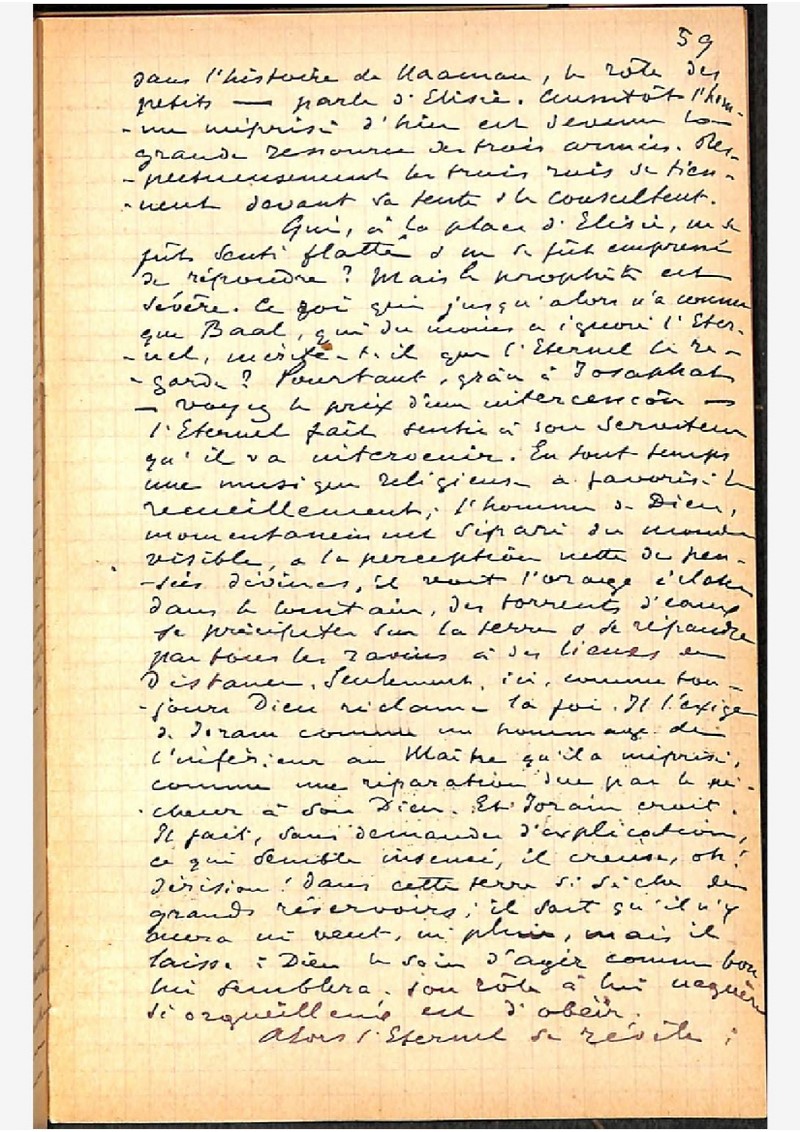 59
dans l'histoire de Naaman, le rôle des
petits — parle d'Elisée. Aussitôt l'hom-
-me méprisé d'hier est devenu la
grande ressource des trois armées. Res-
-pectueusement les trois rois se tien-
-nent devant sa tente & le consultent.
Qui, à la place d'Elisée, ne se
fût senti flatté & ne se fût empressé
de répondre ? Mais le prophète est
sévère. Ce roi qui jusqu'alors n'a connu
que Baal, qui du moins a ignoré l'Eter-
-nel, mérite-t-il que l'Eternel le re-
-garde ? Pourtant, grâce à Josaphat
— voyez le prix d'une intercession —
l'Eternel fait sentir à son serviteur
qu'il va intervenir. En tout temps
une musique religieuse a favorisé le
recueillement ; l'homme de Dieu,
momentanément séparé du monde
visible, a la perception nette des pen-
-sées divines, il voit l'orage éclater
dans le lointain, des torrents d'eau
se précipiter sur la terre & se répandre
par tous les ravins à des lieues de
distance. Seulement, ici, comme tou-
-jours Dieu réclame la foi. Il l'exige
de Joram comme un hommage de
l'inférieur au Maître qu'il a méprisé,
comme une réparation due par le pé-
-cheur à son Dieu. Et Joram croit.
Il fait, sans demander d'explication,
ce qui semble insensé, il creuse, oh !
dérision ! dans cette terre si sèche de
grands réservoirs ; il sait qu'il n'y
aura ni vent, ni pluie, mais il
laisse à Dieu le soin d'agir comme bon
lui semblera. Son rôle à lui naguère
si orgueilleux est d'obéir.
Alors l'Eternel se révèle ;